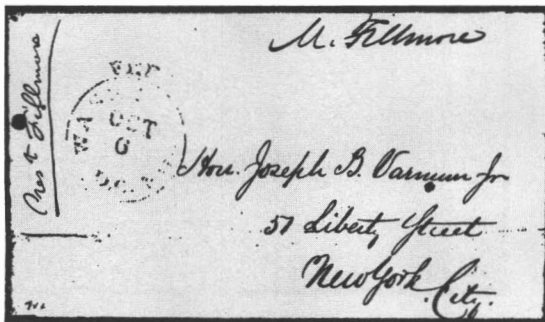 M. Fillmore
Prest Fillmore
FREE
WA
OCT
6
D.C.
Hon. Joseph B. Varnum Jr
57 Liberty Street
New York
City.